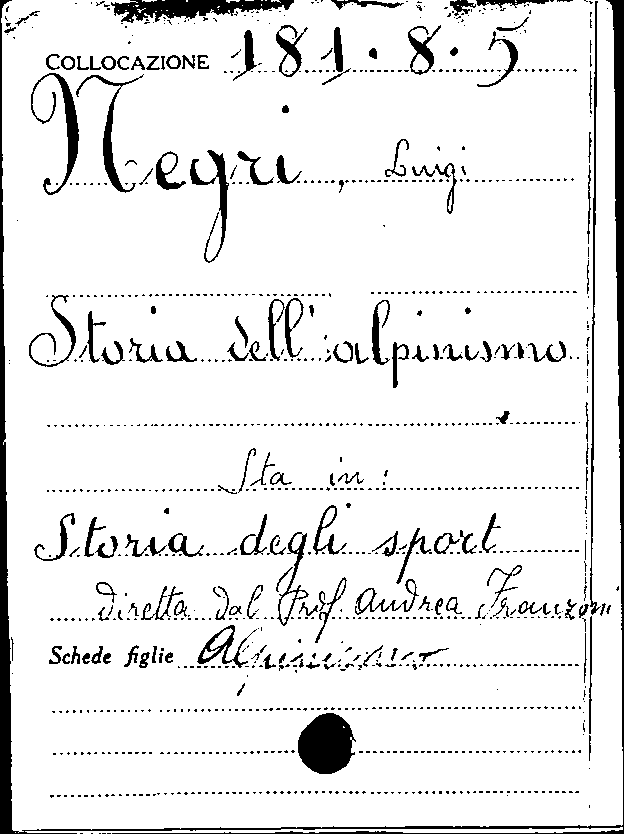 COLLOCAZIONE 181.8.5
Negri, Luigi
Storia dell'alpinismo
Sta in:
Storia degli sport
diretta dal Prof. Andrea Franzoni
Schede figlie Alpinismo